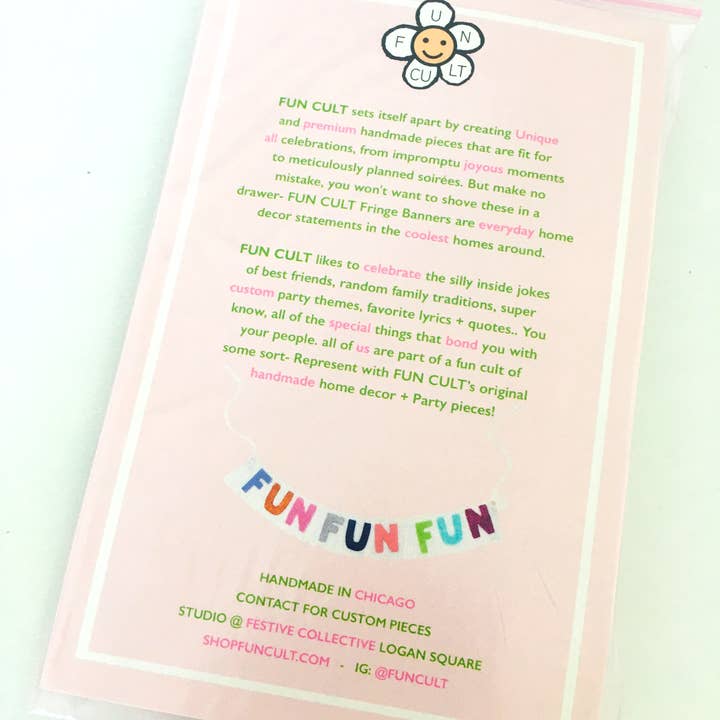 FUN CULT
FUN CULT sets itself apart by creating Unique
and premium handmade pieces that are fit for
all celebrations, from impromptu joyous moments
to meticulously planned soirées. But make no
mistake, you won't want to shove these in a
drawer- FUN CULT Fringe Banners are everyday home
decor statements in the coolest homes around.
FUN CULT likes to celebrate the silly inside jokes
of best friends, random family traditions, super
custom party themes, favorite lyrics + quotes.. You
know, all of the special things that bond you with
your people. all of us are part of a fun cult of
some sort- Represent with FUN CULT's original
handmade home decor + Party pieces!
FUN FUN FUN
HANDMADE IN CHICAGO
CONTACT FOR CUSTOM PIECES
STUDIO @ FESTIVE COLLECTIVE LOGAN SQUARE
SHOPFUNCULT.COM - IG: @FUNCULT